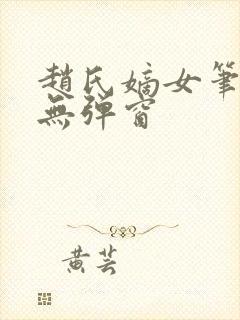 趙氏嫡女筆
無彈窗
黃芸